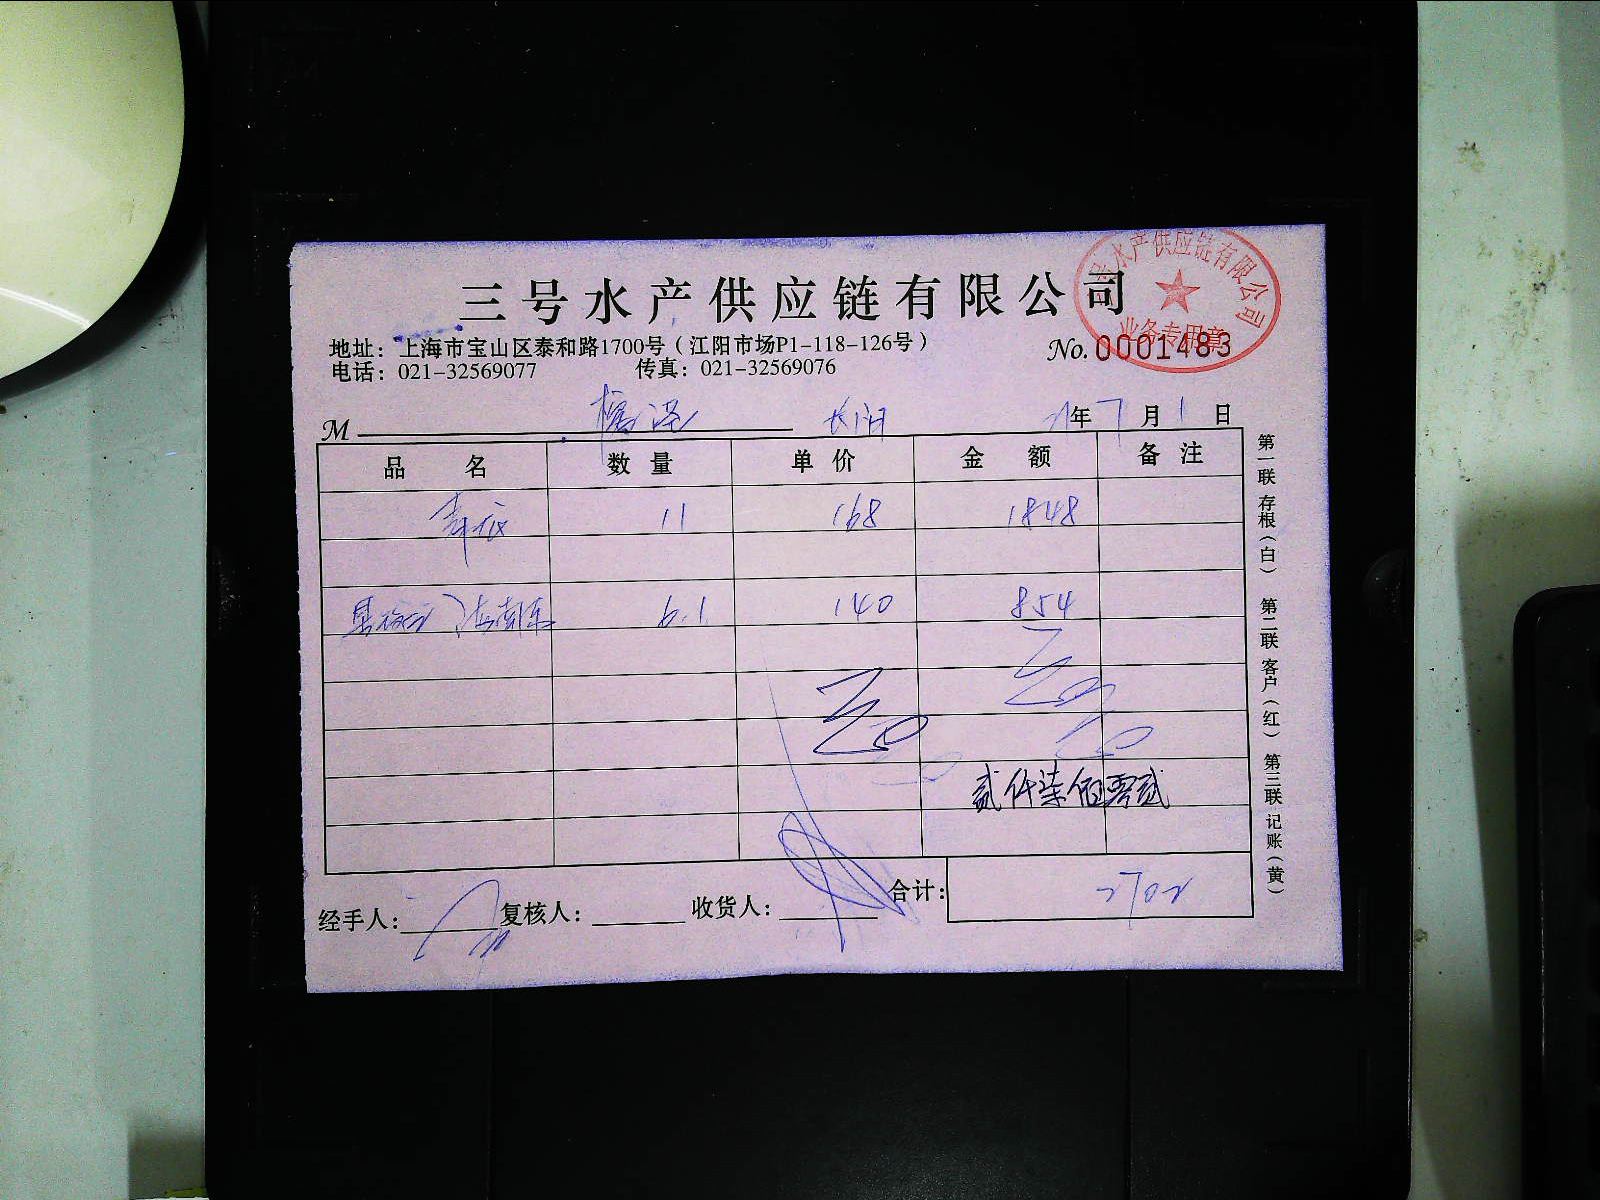 三号水产供应链有限公司
三号水产供应链有限公司
业务专用章
地址：上海市宝山区泰和路1700号（江阳市场P1-118-126号）
No. 0001483
电话：021-32569077 传真：021-32569076
M 长阳 21年7月1日
品名 数量 单价 金额 备注
11 168 1848
6.1 140 854
贰仟柒佰零贰
合计： 2702
经手人： 复核人： 收货人：
第一联 存根（白） 第二联 客户（红） 第三联 记账（黄）